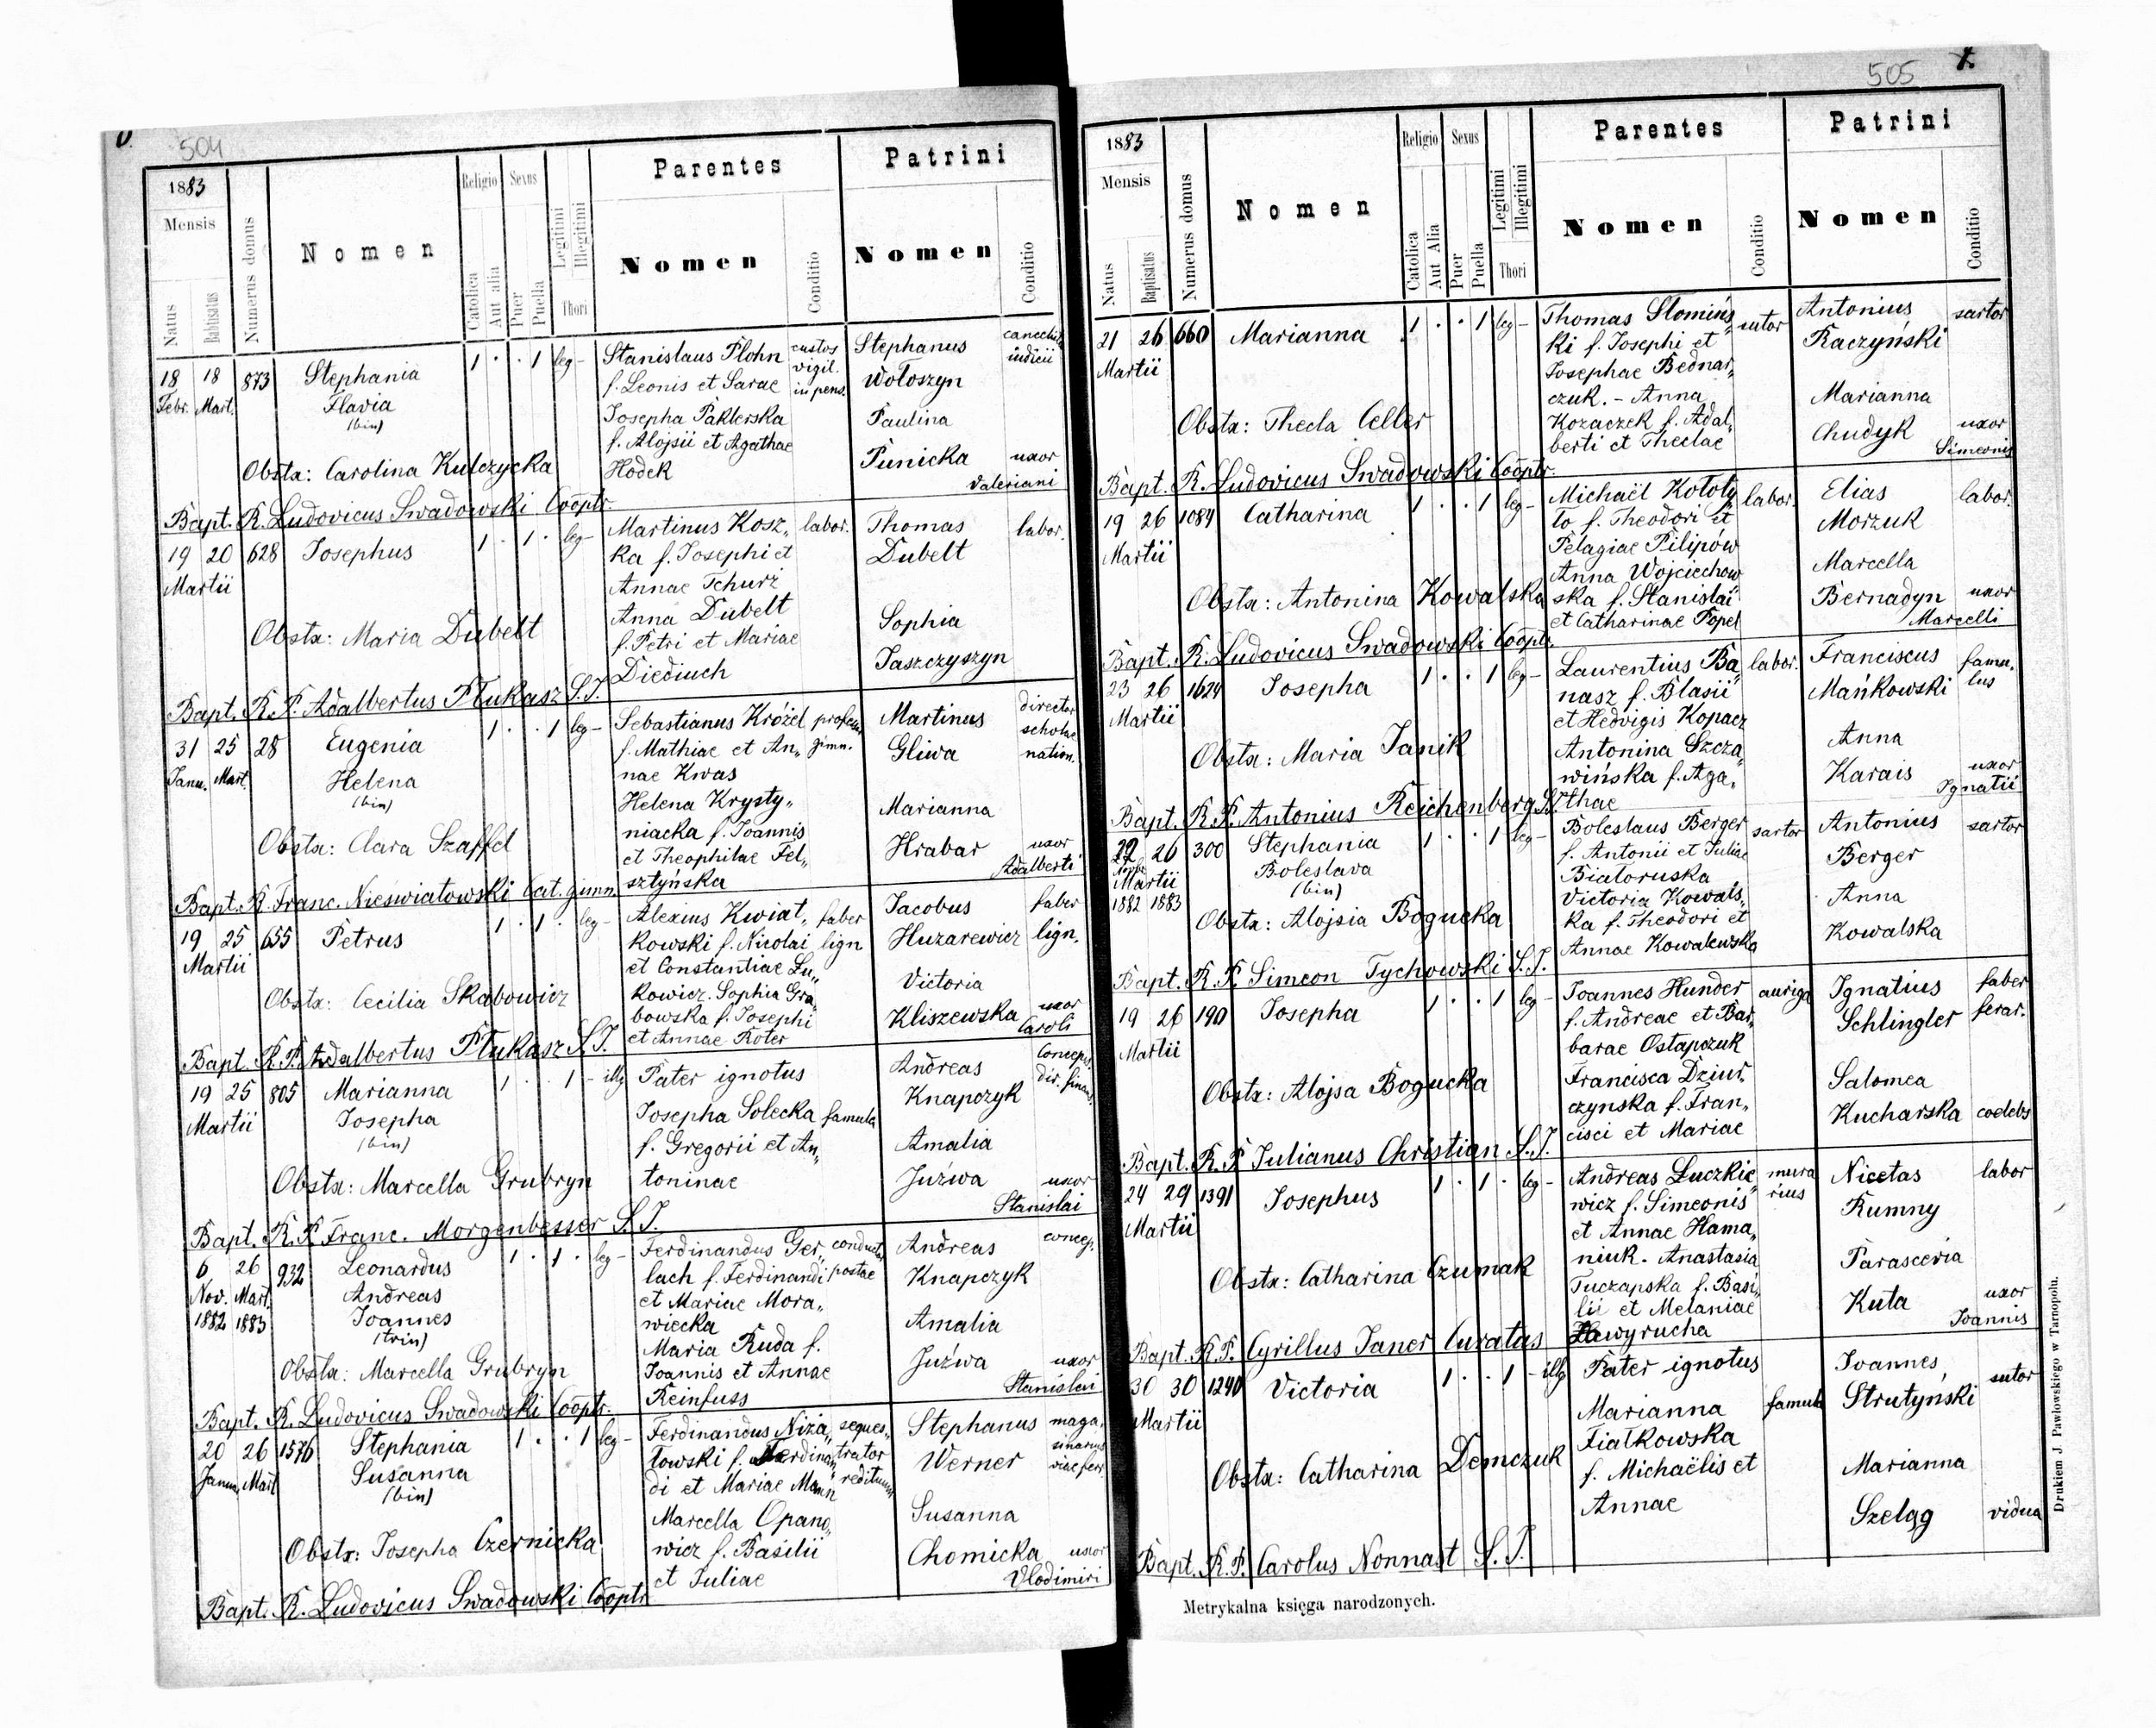 504
1883
Mensis
Natus
Babtisatus
Numerus domus
Nomen
Religio
Catolica
Aut alia
Sexus
Puer
Puella
Legitimi
Illegitimi
Thori
Parentes
Nomen
Conditio
Patrini
Nomen
Conditio
18 18 873 Stephania 1 · · 1 leg- Stanislaus Plohn custos Stephanus
Febr. Mart. Flavia f. Leonis et Sarae vigil. Wołoszyn iudicii
(bin) Josepha Paklerska in pens. Paulina
f. Alojsii et Agathae
Obstx: Carolina Kulczycka Hodek Punicka uxor
Valeriani
Bapt. R. Ludovicus Swadowski Cooptr.
19 20 628 Josephus 1 · 1 · leg- Martinus Kosz„ labor. Thomas labor.
Martii ka f. Josephi et Dubelt
Annae Tchurz
Anna Dubelt Sophia
Obstx: Maria Dubelt f. Petri et Mariae
Diediuch Jaszczyszyn
Bapt. R.P. Adalbertus Płukasz S.J.
31 25 28 Eugenia 1 · · 1 leg- Sebastianus Króźel profess Martinus director
Janu. Mart. Helena f. Mathiae et An„ gimn. Gliwa scholae
(bin) nae Kwas nation.
Helena Krysty„ Marianna
niacka f. Joannis
Obstx: Clara Szaffel et Theophilae Fel„ Hrabar uxor
sztyńska Adalberti
Bapt. R. Franc. Nieświatowski Cat. gimn.
19 25 655 Petrus 1 · 1 · leg- Alexius Kwiat„ faber Jacobus faber
Martii kowski f. Nicolai lign Huzarewicz lign.
et Constantiae Lu„
Obstx: Cecilia Skabowicz kowicz. Sophia Gra„ Victoria
bowska f. Josephi Kliszewska uxor
et Annae Koter Caroli
Bapt. R.P. Adalbertus Płukasz S.J.
19 25 805 Marianna 1 · · 1 - illg Pater ignotus Andreas Concep.
Martii Josepha Josepha Solecka famula Knapczyk dir. finans.
(bin) f. Gregorii et An„ Amalia
Obstx: Marcella Grubryn toninae Juźwa uxor
Stanislai
Bapt. R.P. Franc. Morgenbesser S.J.
6 26 932 Leonardus 1 · 1 · leg- Ferdinandus Ger„ conductor Andreas concep.
Nov. Mart. Andreas lach f. Ferdinandi postae Knapczyk
1882 1883 Joannes et Mariae Mora„
(trin) wiecka Amalia
Maria Ruda f.
Obstx: Marcella Grubryn Joannis et Annae Juźwa uxor
Reinfuss Stanislai
Bapt. R. Ludovicus Swadowski Cooptr.
20 26 1576 Stephania 1 · · 1 leg- Ferdinandus Niza„ seques„ Stephanus maga„
Janu. Mart Susanna łowski f. Ferdinan„ trator Werner sinarius
(bin) di et Mariae Mann redituum viae ferr
Marcella Opano„ Susanna
Obstx: Josepha Czernicka wicz f. Basilii Chomicka uxor
et Juliae Vlodimiri
Bapt. R. Ludovicus Swadowski Cooptr.
505
1883
Mensis
Natus
Baptisatus
Numerus domus
Nomen
Religio
Catolica
Aut Alia
Sexus
Puer
Puella
Legitimi
Illegitimi
Thori
Parentes
Nomen
Conditio
Patrini
Nomen
Conditio
21 26 660 Marianna 1 · · 1 leg- Thomas Słomińs„ sutor Antonius sartor
Martii ki f. Josephi et Raczyński
Josephae Bednar„
czuk. - Anna Marianna
Obstx: Thecla Celler Kozaczek f. Adal„ Chudyk uxor
berti et Theclae Simeonis
Bapt. R. Ludovicus Swadowski Cooptr.
19 26 1084 Catharina 1 · · 1 leg- Michaël Kołoty„ labor. Elias labor.
Martii ło f. Theodori et Morzuk
Pelagiae Pilipów Marcella
Anna Wojciechow
Obstx: Antonina Kowalska ska f. Stanislai Bernadyn uxor
et Catharinae Popel Marcelli
Bapt. R. Ludovicus Swadowski Cooptr.
23 26 1624 Josepha 1 · · 1 leg- Laurentius Ba„ labor. Franciscus famu„
Martii nasz f. Blasii Mańkowski lus
et Hedvigis Kopacz
Obstx: Maria Janik Antonina Szcza„ Anna
wińska f. Aga„ Karais uxor
thae Ignatii
Bapt. R.P. Antonius Reichenberg S.J.
22 26 300 Stephania 1 · · 1 leg- Boleslaus Berger sartor Antonius sartor
Martii Boleslava f. Antonii et Juliae Berger
(bin) Białoruska
1882 1883 Victoria Kowals„ Anna
Obstx: Alojsia Bogucka ka f. Theodori et Kowalska
Annae Kowalewska
Bapt. R.P. Simeon Tychowski S.J.
19 26 190 Josepha 1 · · 1 leg- Joannes Hunder auriga Ignatius faber
Martii f. Andreae et Bar„ Schlingler ferar.
barae Ostapczuk
Obstx: Alojsa Bogucka Francisca Dziur„ Salomea
czynska f. Fran„ Kucharska coelebs
cisci et Mariae
Bapt. R.P. Julianus Christian S.J.
24 29 1391 Josephus 1 · 1 · leg- Andreas Łuczkie„ mura Nicetas labor
Martii wicz f. Simeonis rius Rumny
et Annae Hama„
niuk. Anastasia Parasceria
Obstx: Catharina Czumak Tuczapska f. Basi„
lii et Melaniae Kuta uxor
Hawyrucha Joannis
Bapt. R.P. Cyrillus Janer Curatas
30 30 1240 Victoria 1 · · 1 - illg Pater ignotus Joannes sutor
Martii Marianna famula Strutyński
Fiałkowska
Obstx: Catharina Demczuk f. Michaëlis et Marianna
Annae Szeląg vidua
Bapt. R.P. Carolus Nonnast S.J.
Metrykalna księga narodzonych.
Drukiem J. Pawłowskiego w Tarnopolu.